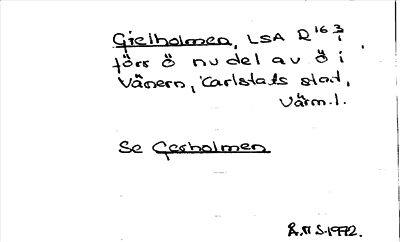 Gielholmen, LSA R16 3/1,
förr ö nu del av ö i
Vänern, Carlstads stad,
Värm.l.
Se Gesholmen
S.1992.